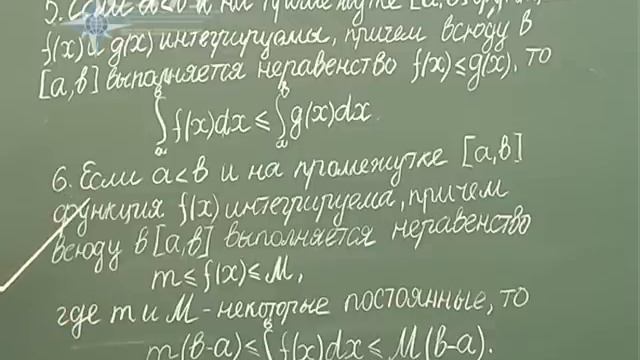 5. Если a<в и на промежутке [a,в]
f(x) и g(x) интегрируемы, причем всюду в
[a,в] выполняется неравенство f(x)≤g(x), то
∫ₐᵇ f(x)dx ≤ ∫ₐᵇ g(x)dx.
6. Если a<в и на промежутке [a,в]
функция f(x) интегрируема, причем
всюду в [a,в] выполняется неравенство
m≤f(x)≤M,
где m и M - некоторые постоянные, то
m(в-a)≤∫ₐᵇ f(x)dx≤M(в-a).